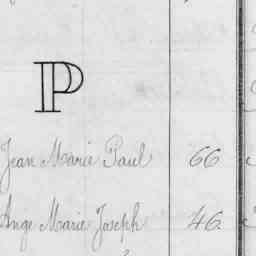 P
Jean Marie Paul 66
Ange Marie Joseph 46